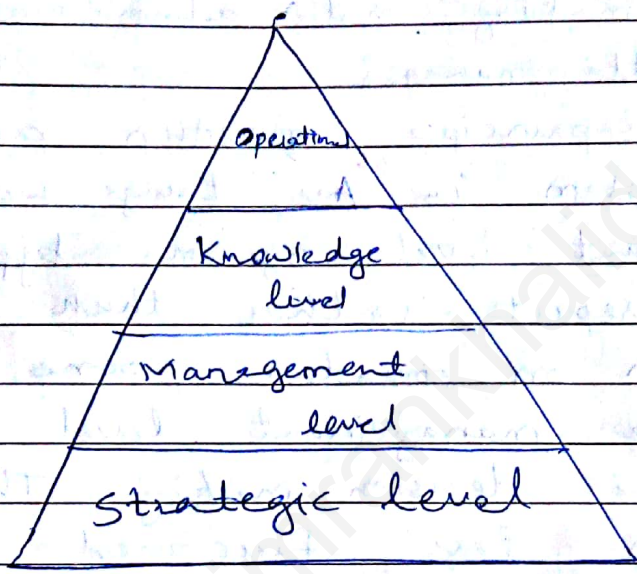 Operational
Knowledge
level
Management
level
Strategic level
mirankhalid